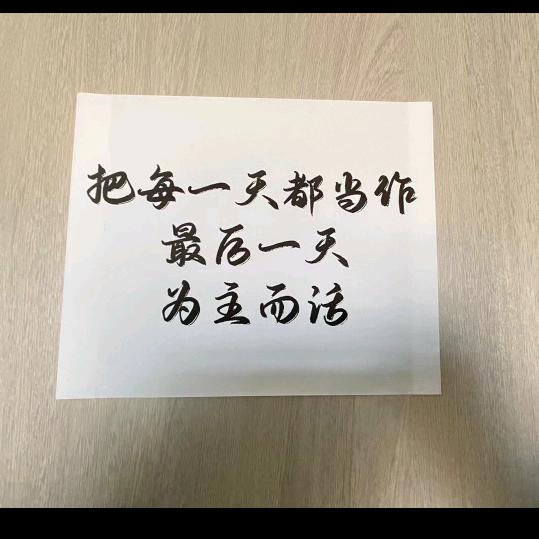 把每一天都当作
最后一天
为主而活